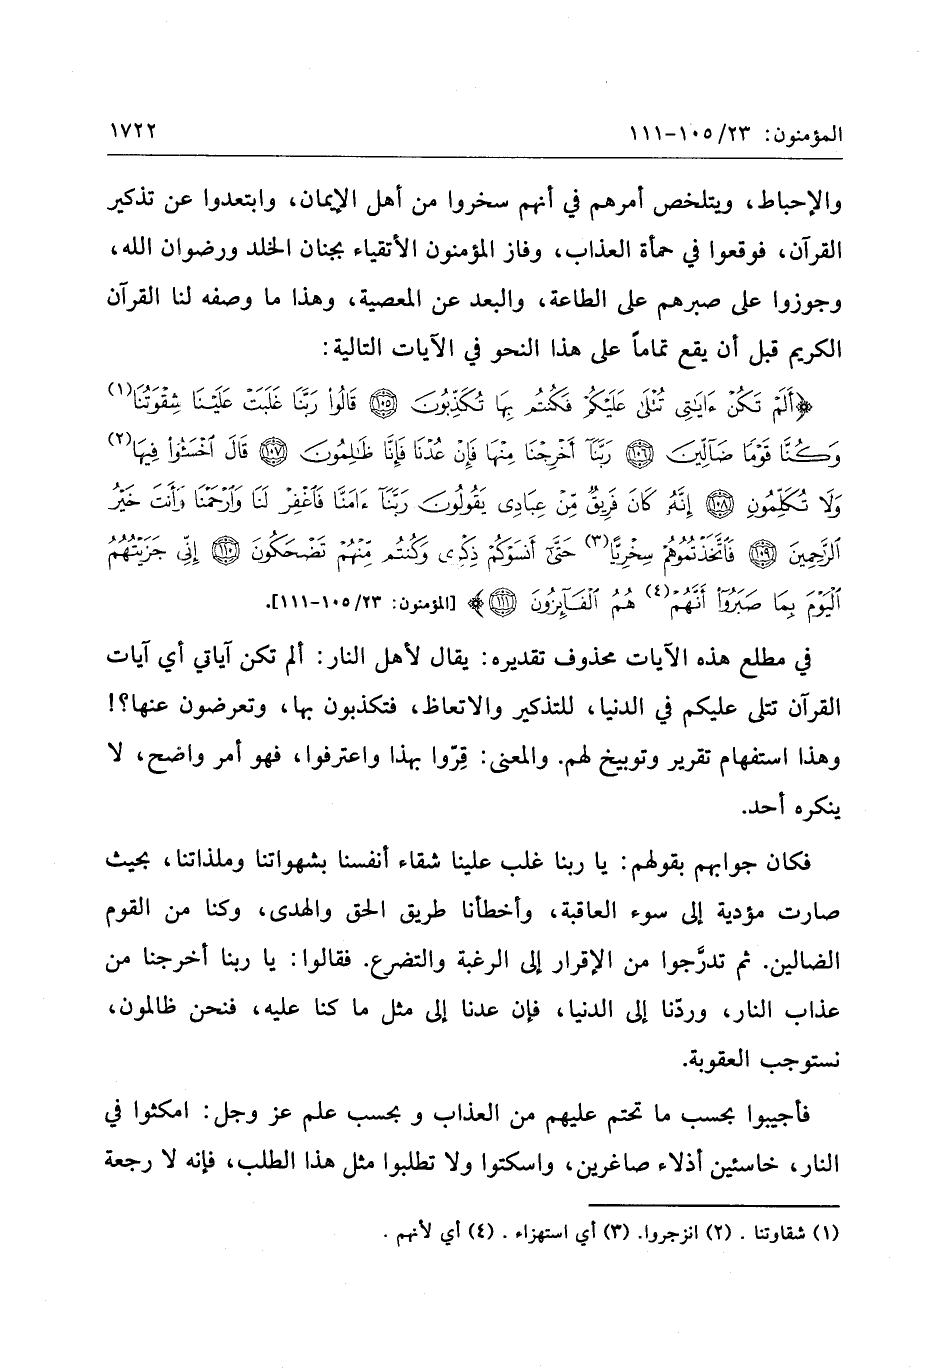 المؤمنون: ٢٣/ ١٠٥-١١١ ١٧٢٢
والإحباط، ويتلخص أمرهم في أنهم سخروا من أهل الإيمان، وابتعدوا عن تذكير
القرآن، فوقعوا في حمأة العذاب، وفاز المؤمنون الأتقياء بجنان الخلد ورضوان الله،
وجوزوا على صبرهم على الطاعة، والبعد عن المعصية، وهذا ما وصفه لنا القرآن
الكريم قبل أن يقع تماماً على هذا النحو في الآيات التالية:
﴿أَلَمْ تَكُنْ ءَايَٰتِى تُتْلَىٰ عَلَيْكُمْ فَكُنتُم بِهَا تُكَذِّبُونَ ١٠٥ قَالُوا۟ رَبَّنَا غَلَبَتْ عَلَيْنَا شِقْوَتُنَا(١)
وَكُنَّا قَوْمًا ضَآلِّينَ ١٠٦ رَبَّنَآ أَخْرِجْنَا مِنْهَا فَإِنْ عُدْنَا فَإِنَّا ظَٰلِمُونَ ١٠٧ قَالَ ٱخْسَـُٔوا۟ فِيهَا(٢)
وَلَا تُكَلِّمُونِ ١٠٨ إِنَّهُۥ كَانَ فَرِيقٌ مِّنْ عِبَادِى يَقُولُونَ رَبَّنَآ ءَامَنَّا فَٱغْفِرْ لَنَا وَٱرْحَمْنَا وَأَنتَ خَيْرُ
ٱلرَّٰحِمِينَ ١٠٩ فَٱتَّخَذْتُمُوهُمْ سِخْرِيًّا(٣) حَتَّىٰٓ أَنسَوْكُمْ ذِكْرِى وَكُنتُم مِّنْهُمْ تَضْحَكُونَ ١١٠ إِنِّى جَزَيْتُهُمُ
ٱلْيَوْمَ بِمَا صَبَرُوٓا۟ أَنَّهُمْ(٤) هُمُ ٱلْفَآئِزُونَ ١١١﴾ [المؤمنون: ٢٣/ ١٠٥-١١١].
في مطلع هذه الآيات محذوف تقديره: يقال لأهل النار: ألم تكن آياتي أي آيات
القرآن تتلى عليكم في الدنيا، للتذكير والاتعاظ، فتكذبون بها، وتعرضون عنها؟!
وهذا استفهام تقرير وتوبيخ لهم. والمعنى: قِرّوا بهذا واعترفوا، فهو أمر واضح، لا
ينكره أحد.
فكان جوابهم بقولهم: يا ربنا غلب علينا شقاء أنفسنا بشهواتنا وملذاتنا، بحيث
صارت مؤدية إلى سوء العاقبة، وأخطأنا طريق الحق والهدى، وكنا من القوم
الضالين. ثم تدرَّجوا من الإقرار إلى الرغبة والتضرع. فقالوا: يا ربنا أخرجنا من
عذاب النار، وردّنا إلى الدنيا، فإن عدنا إلى مثل ما كنا عليه، فنحن ظالمون،
نستوجب العقوبة.
فأجيبوا بحسب ما تحتم عليهم من العذاب و بحسب علم عز وجل: امكثوا في
النار، خاسئين أذلاء صاغرين، واسكتوا ولا تطلبوا مثل هذا الطلب، فإنه لا رجعة
(١) شقاوتنا . (٢) انزجروا. (٣) أي استهزاء . (٤) أي لأنهم .